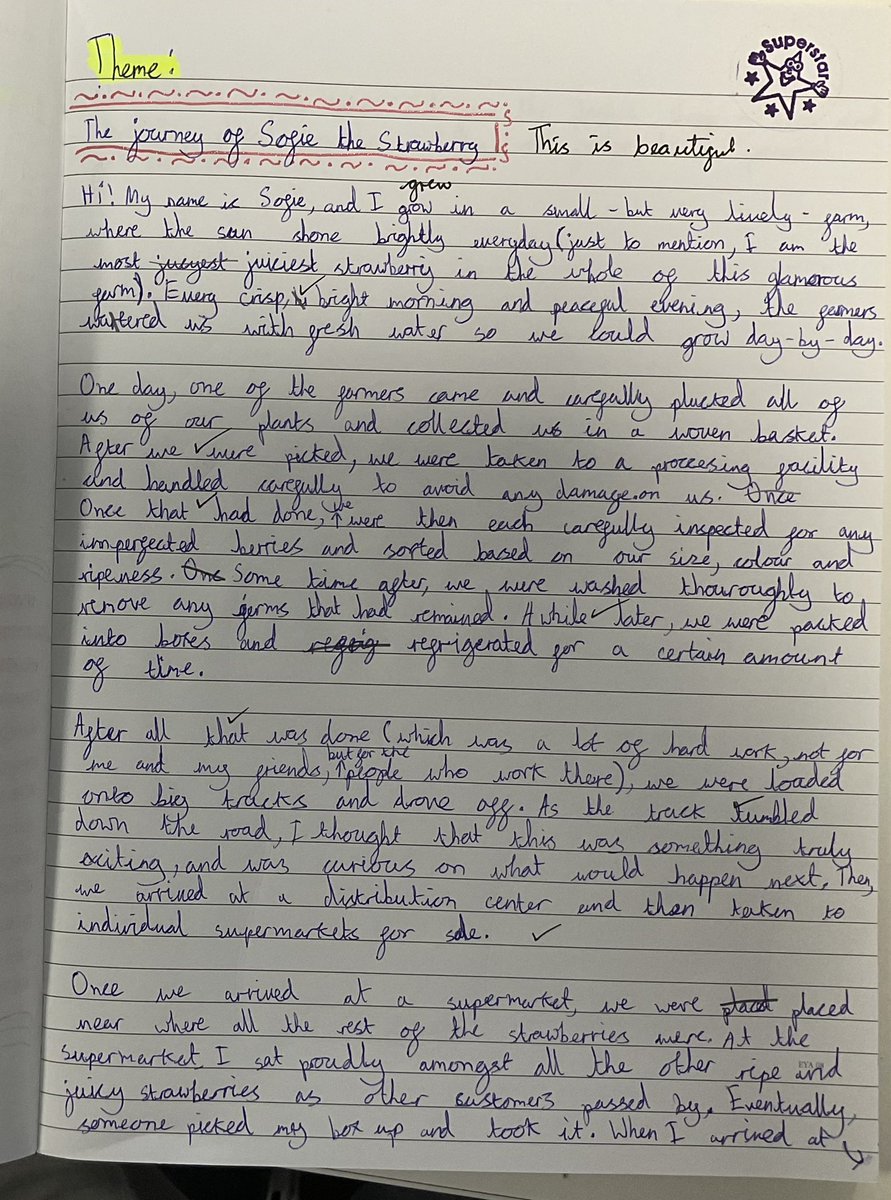 Theme:
Superstar
The journey of Sofie the Strawberry
This is beautiful.
grew
Hi! My name is Sofie, and I grow in a small - but very lively - farm,
where the sun shone brightly everyday (just to mention, I am the
most juicyest juiciest strawberry in the whole of this glamorous
farm). Every crisp, bright morning and peaceful evening, the farmers
watered us with fresh water so we could grow day-by-day.
One day, one of the farmers came and carefully plucked all of
us of our plants and collected us in a woven basket.
After we were picked, we were taken to a proccesing facility
and handled carefully to avoid any damage on us. Once
Once that had done, we were then each carefully inspected for any
imperfected berries and sorted based on our size, colour and
ripeness. One Some time after, we were washed thouroughly to
remove any germs that had remained. A while later, we were packed
into boxes and refrig refrigerated for a certain amount
of time.
After all that was done (which was a lot of hard work, not for
me and my friends, but for the people who work there), we were loaded
onto big trucks and drove off. As the truck tumbled
down the road, I thought that this was something truly
exciting, and was curious on what would happen next. Then,
we arrived at a distribution center and then taken to
individual supermarkets for sale.
Once we arrived at a supermarket, we were placd placed
near where all the rest of the strawberries were. At the
supermarket I sat proudly amongst all the other ripe and
juicy strawberries as other customers passed by. Eventually,
someone picked my box up and took it. When I arrived at